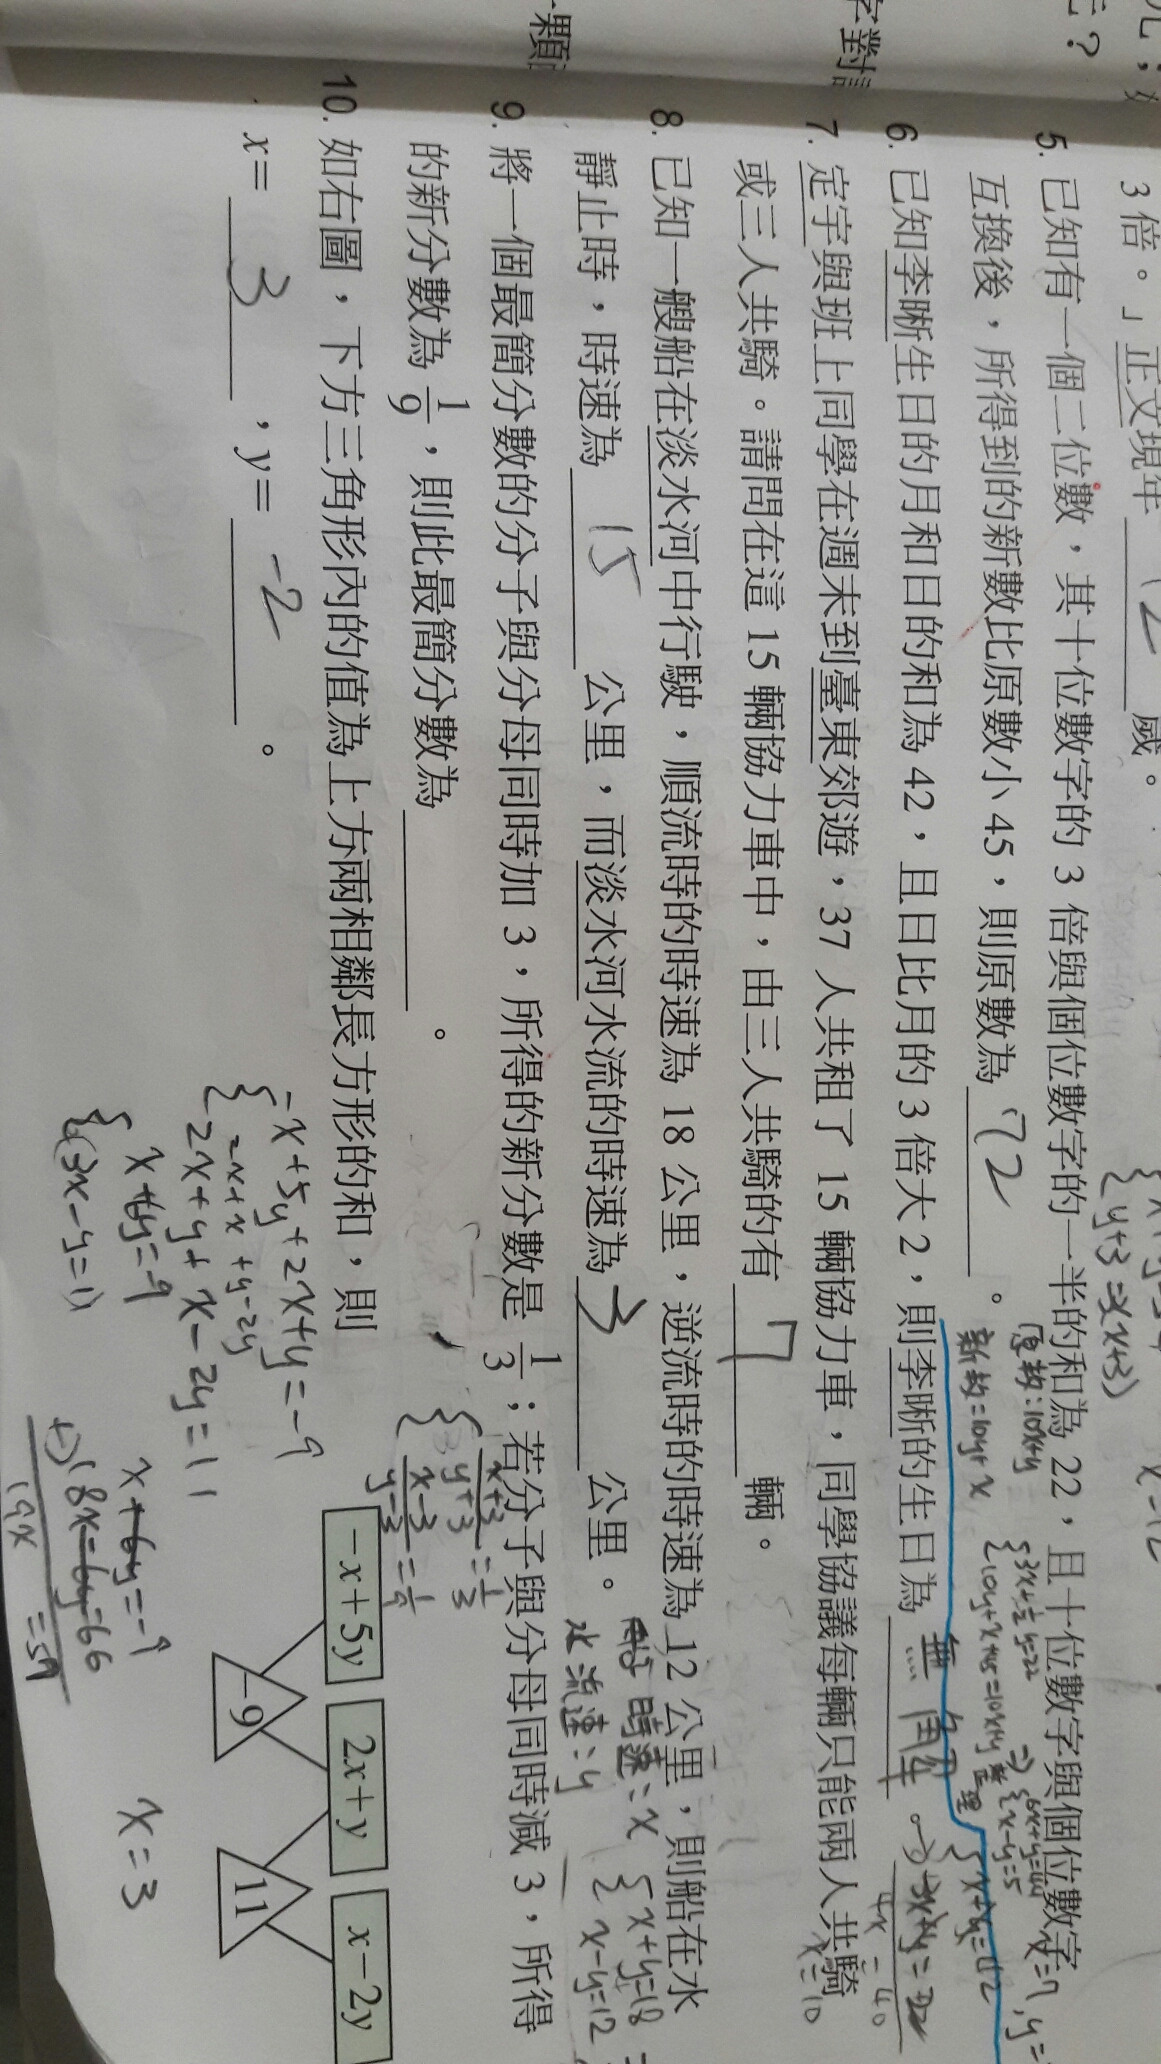 3 倍。」正文現年 12 歲。
5. 已知有一個二位數，其十位數字的 3 倍與個位數字的一半的和為 22，且十位數字與個位數字
互換後，所得到的新數比原數小 45，則原數為 72 。
原數：10x+y
新數=10y+x
6. 已知李晰生日的月和日的和為 42，且日比月的 3 倍大 2，則李晰的生日為 無解。
4x = 40
x=10
7. 定宇與班上同學在週末到臺東郊遊，37 人共租了 15 輛協力車，同學協議每輛只能兩人共騎
或三人共騎。請問在這 15 輛協力車中，由三人共騎的有 7 輛。
8. 已知一艘船在淡水河中行駛，順流時的時速為 18 公里，逆流時的時速為 12 公里，則船在水
靜止時，時速為 15 公里，而淡水河水流的時速為 3 公里。
時速：x
水流速：y
x+y=18
x-y=12
9. 將一個最簡分數的分子與分母同時加 3，所得的新分數是 1/3；若分子與分母同時減 3，所得
的新分數為 1/9，則此最簡分數為 。
x+3/y+3 = 1/3
x-3/y-3 = 1/9
10. 如右圖，下方三角形內的值為上方兩相鄰長方形的和，則
x= 3 ，y= -2 。
-x+5y 2x+y x-2y
-9 11
-x+5y+2x+y=-9
2x+x+y-2y
2x+y+x-2y=11
x+6y=-9
3x-y=11
x+6y=-9
+) 18x-6y=66
19x =57
x=3